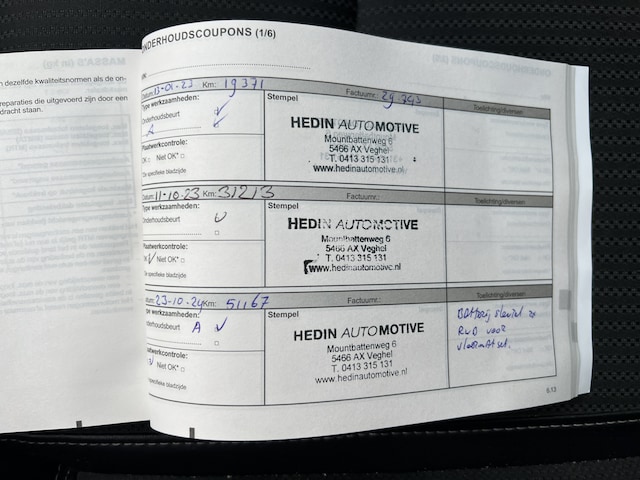 MASSA'S (in kg)
n dezelfde kwaliteitsnormen als de on-
reparaties die uitgevoerd zijn door een
dracht staan.
ONDERHOUDSCOUPONS (1/6)
Datum: 13-01-23 Km: 19371 Factuurnr.: 29343
Type werkzaamheden: Stempel Toelichting/diversen
Onderhoudsbeurt
A
HEDIN AUTOMOTIVE
Mountbattenweg 6
5466 AX Veghel
T. 0413 315 131
www.hedinautomotive.nl
Plaatwerkcontrole:
OK Niet OK*
*Zie specifieke bladzijde
Datum: 11-10-23 Km: 31213 Factuurnr.:
Type werkzaamheden: Stempel Toelichting/diversen
Onderhoudsbeurt
HEDIN AUTOMOTIVE
Mountbattenweg 6
5466 AX Veghel
T. 0413 315 131
www.hedinautomotive.nl
Plaatwerkcontrole:
OK Niet OK*
*Zie specifieke bladzijde
Datum: 23-10-24 Km: 51167 Factuurnr.:
Type werkzaamheden: Stempel Toelichting/diversen
Onderhoudsbeurt A
HEDIN AUTOMOTIVE
Mountbattenweg 6
5466 AX Veghel
T. 0413 315 131
www.hedinautomotive.nl
Batterij sleutel
voor
Plaatwerkcontrole:
Niet OK*
*Zie specifieke bladzijde
6.13